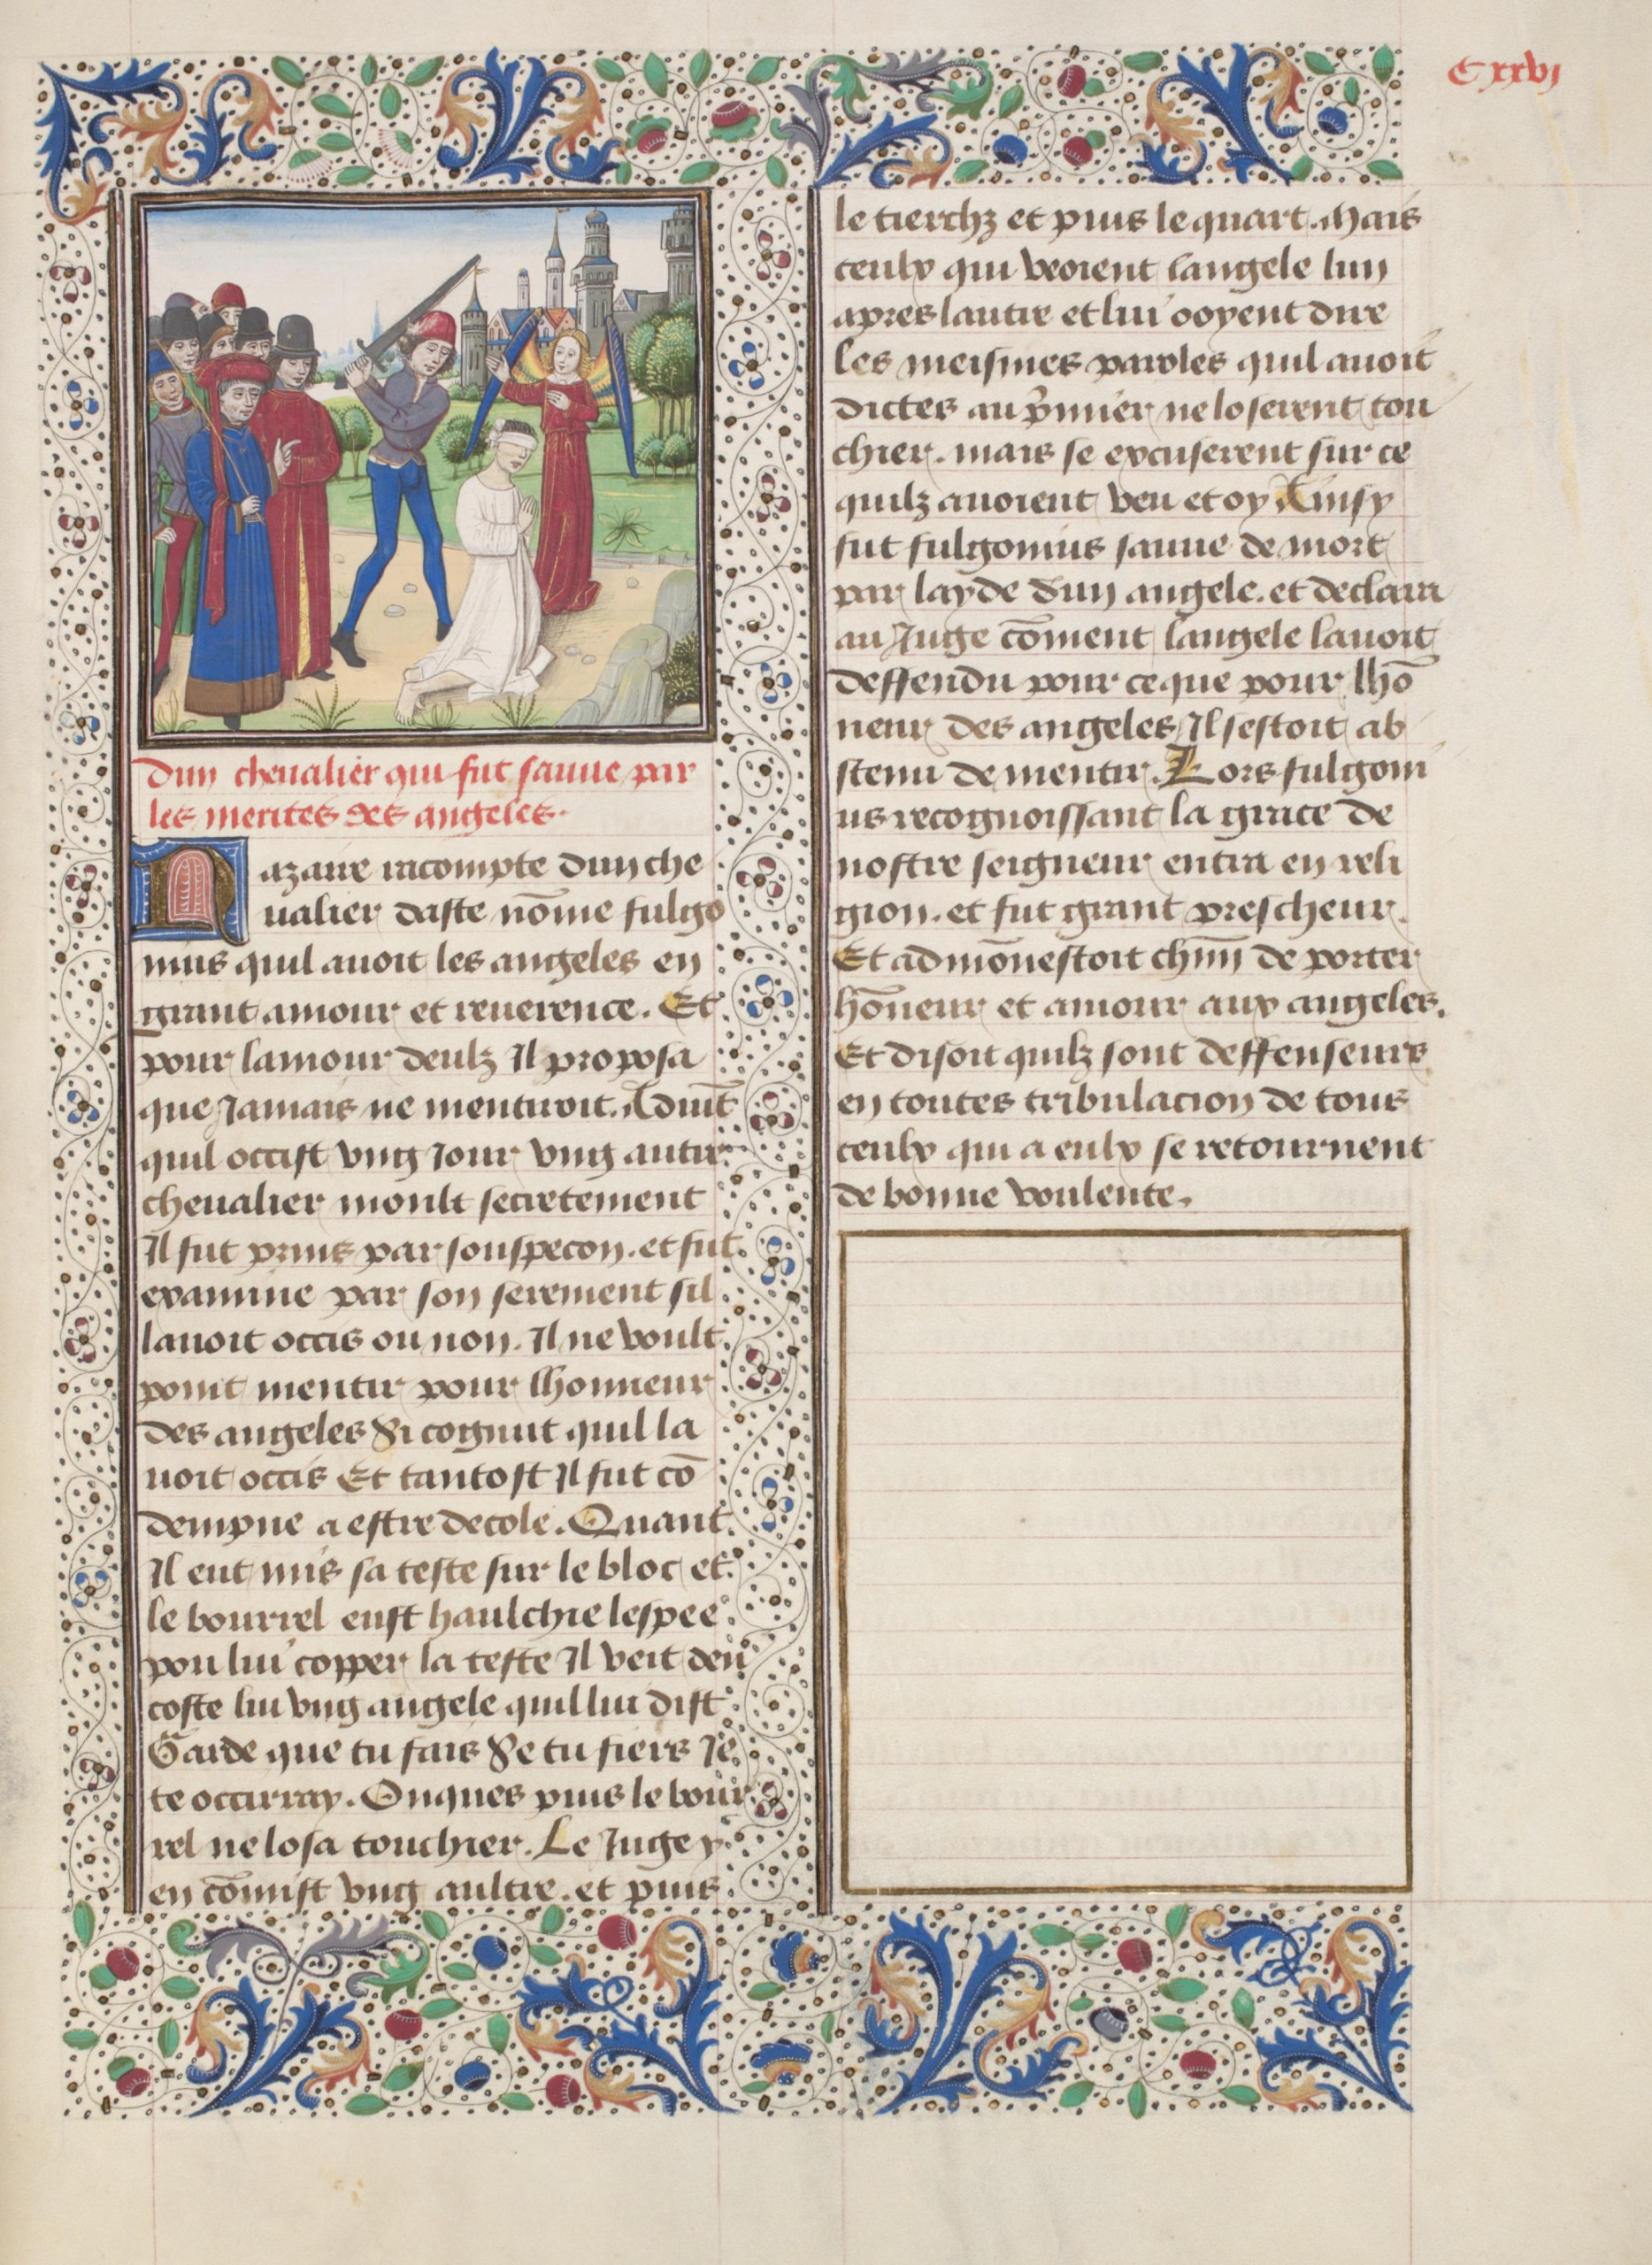 C xxvj
Dun cheualier qui fut sauue par
les merites des angeles.
Nazaire racompte dun che
ualier daste nōme fulgo
nius quil auoit les angeles en
grant amour et reuerence. Et
pour lamour deulz Il proposa
que Jamais ne mentiroit. Aduīt
quil occist vng Jour vng autre
cheualier moult secretement
Il fut prins par souspecon. et fut
examine par son serement sil
lauoit occis ou non. Il ne voult
point mentir pour lhonneur
des angeles Si cognut quil la
uoit occis Et tantost Il fut cō
dempne a estre decole. Quant
Il eut mis sa teste sur le bloc et
le bourrel eust haulchie lespee
pou lui copper la teste Il veit den
coste lui vng angele quil lui dist
Garde que tu fais Se tu fiers Je
te occirray. Onques puis le bour
rel ne losa touchier. Le Juge y
en cōmist vng aultre. et puis
le tierchz et puis le quart. Mais
ceulx qui veoient langele lun
apres lautre et lui ooyent dire
les meismes paroles quil auoit
dictes au p̄mier ne loserent tou
chier. mais se excuserent sur ce
quilz auoient veu et oy Ainsy
fut fulgonius sauue de mort
par layde dun angele. et declara
au Juge cōment langele lauoit
deffendu pour ce que pour lhō
neur des angeles Il sestoit ab
stenu de mentir. Lors fulgoni
us recognoissant la grace de
nostre seigneur entra en reli
gion. et fut grant prescheur.
Et admōnestoit chūn de porter
hōneur et amour aux angeles.
Et disoit quilz sont deffenseurs
en toutes tribulacion de tous
ceulx qui a eulx se retournent
de bonne voulente.